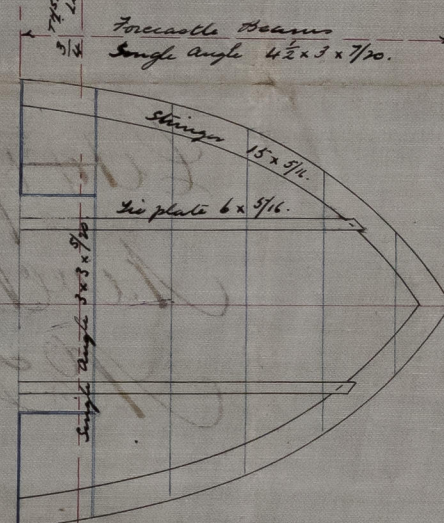 Forecastle Beams
Single Angle 4½ x 3 x 7/20.
3/4
Stringer 15 x 5/16.
Tie plate 6 x 5/16.
Single Angle 3 x 3 x 5/20.